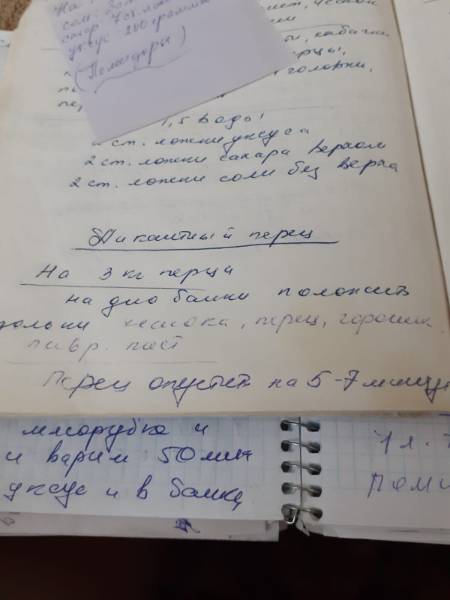 На
сахар
уксус 200 грамм
(Помидоры)
кабачки
головки,
1,5 воды
ст. ложки уксуса
2 ст. ложки сахара верхом
2 ст. ложки соли без верха
Пикантный перец
На 3 кг перца
на дно банки положить
дольки чеснока, перец, горошек
лавр. лист
Перец опустить на 5-7 минут
мясорубка и
и варим 50 мин
уксус и в банку
1 л.
Поми